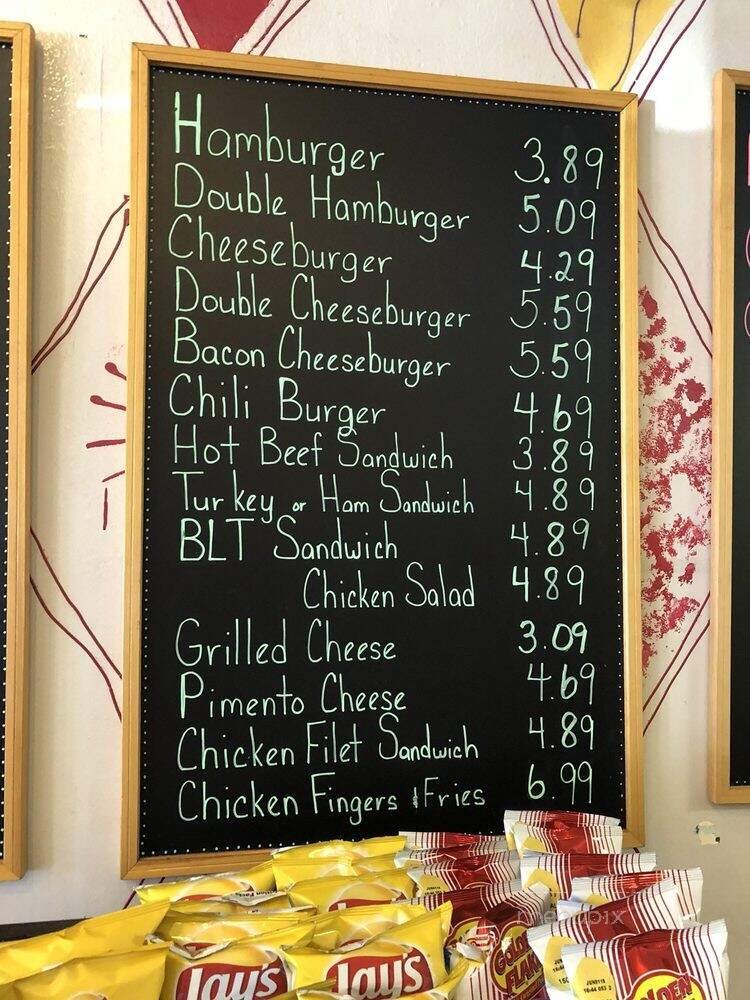 Hamburger 3.89
Double Hamburger 5.09
Cheeseburger 4.29
Double Cheeseburger 5.59
Bacon Cheeseburger 5.59
Chili Burger 4.69
Hot Beef Sandwich 3.89
Turkey or Ham Sandwich 4.89
BLT Sandwich 4.89
Chicken Salad 4.89
Grilled Cheese 3.09
Pimento Cheese 4.69
Chicken Filet Sandwich 4.89
Chicken Fingers & Fries 6.99
menupix
Lay's
Lay's
GOLDEN FLAKE